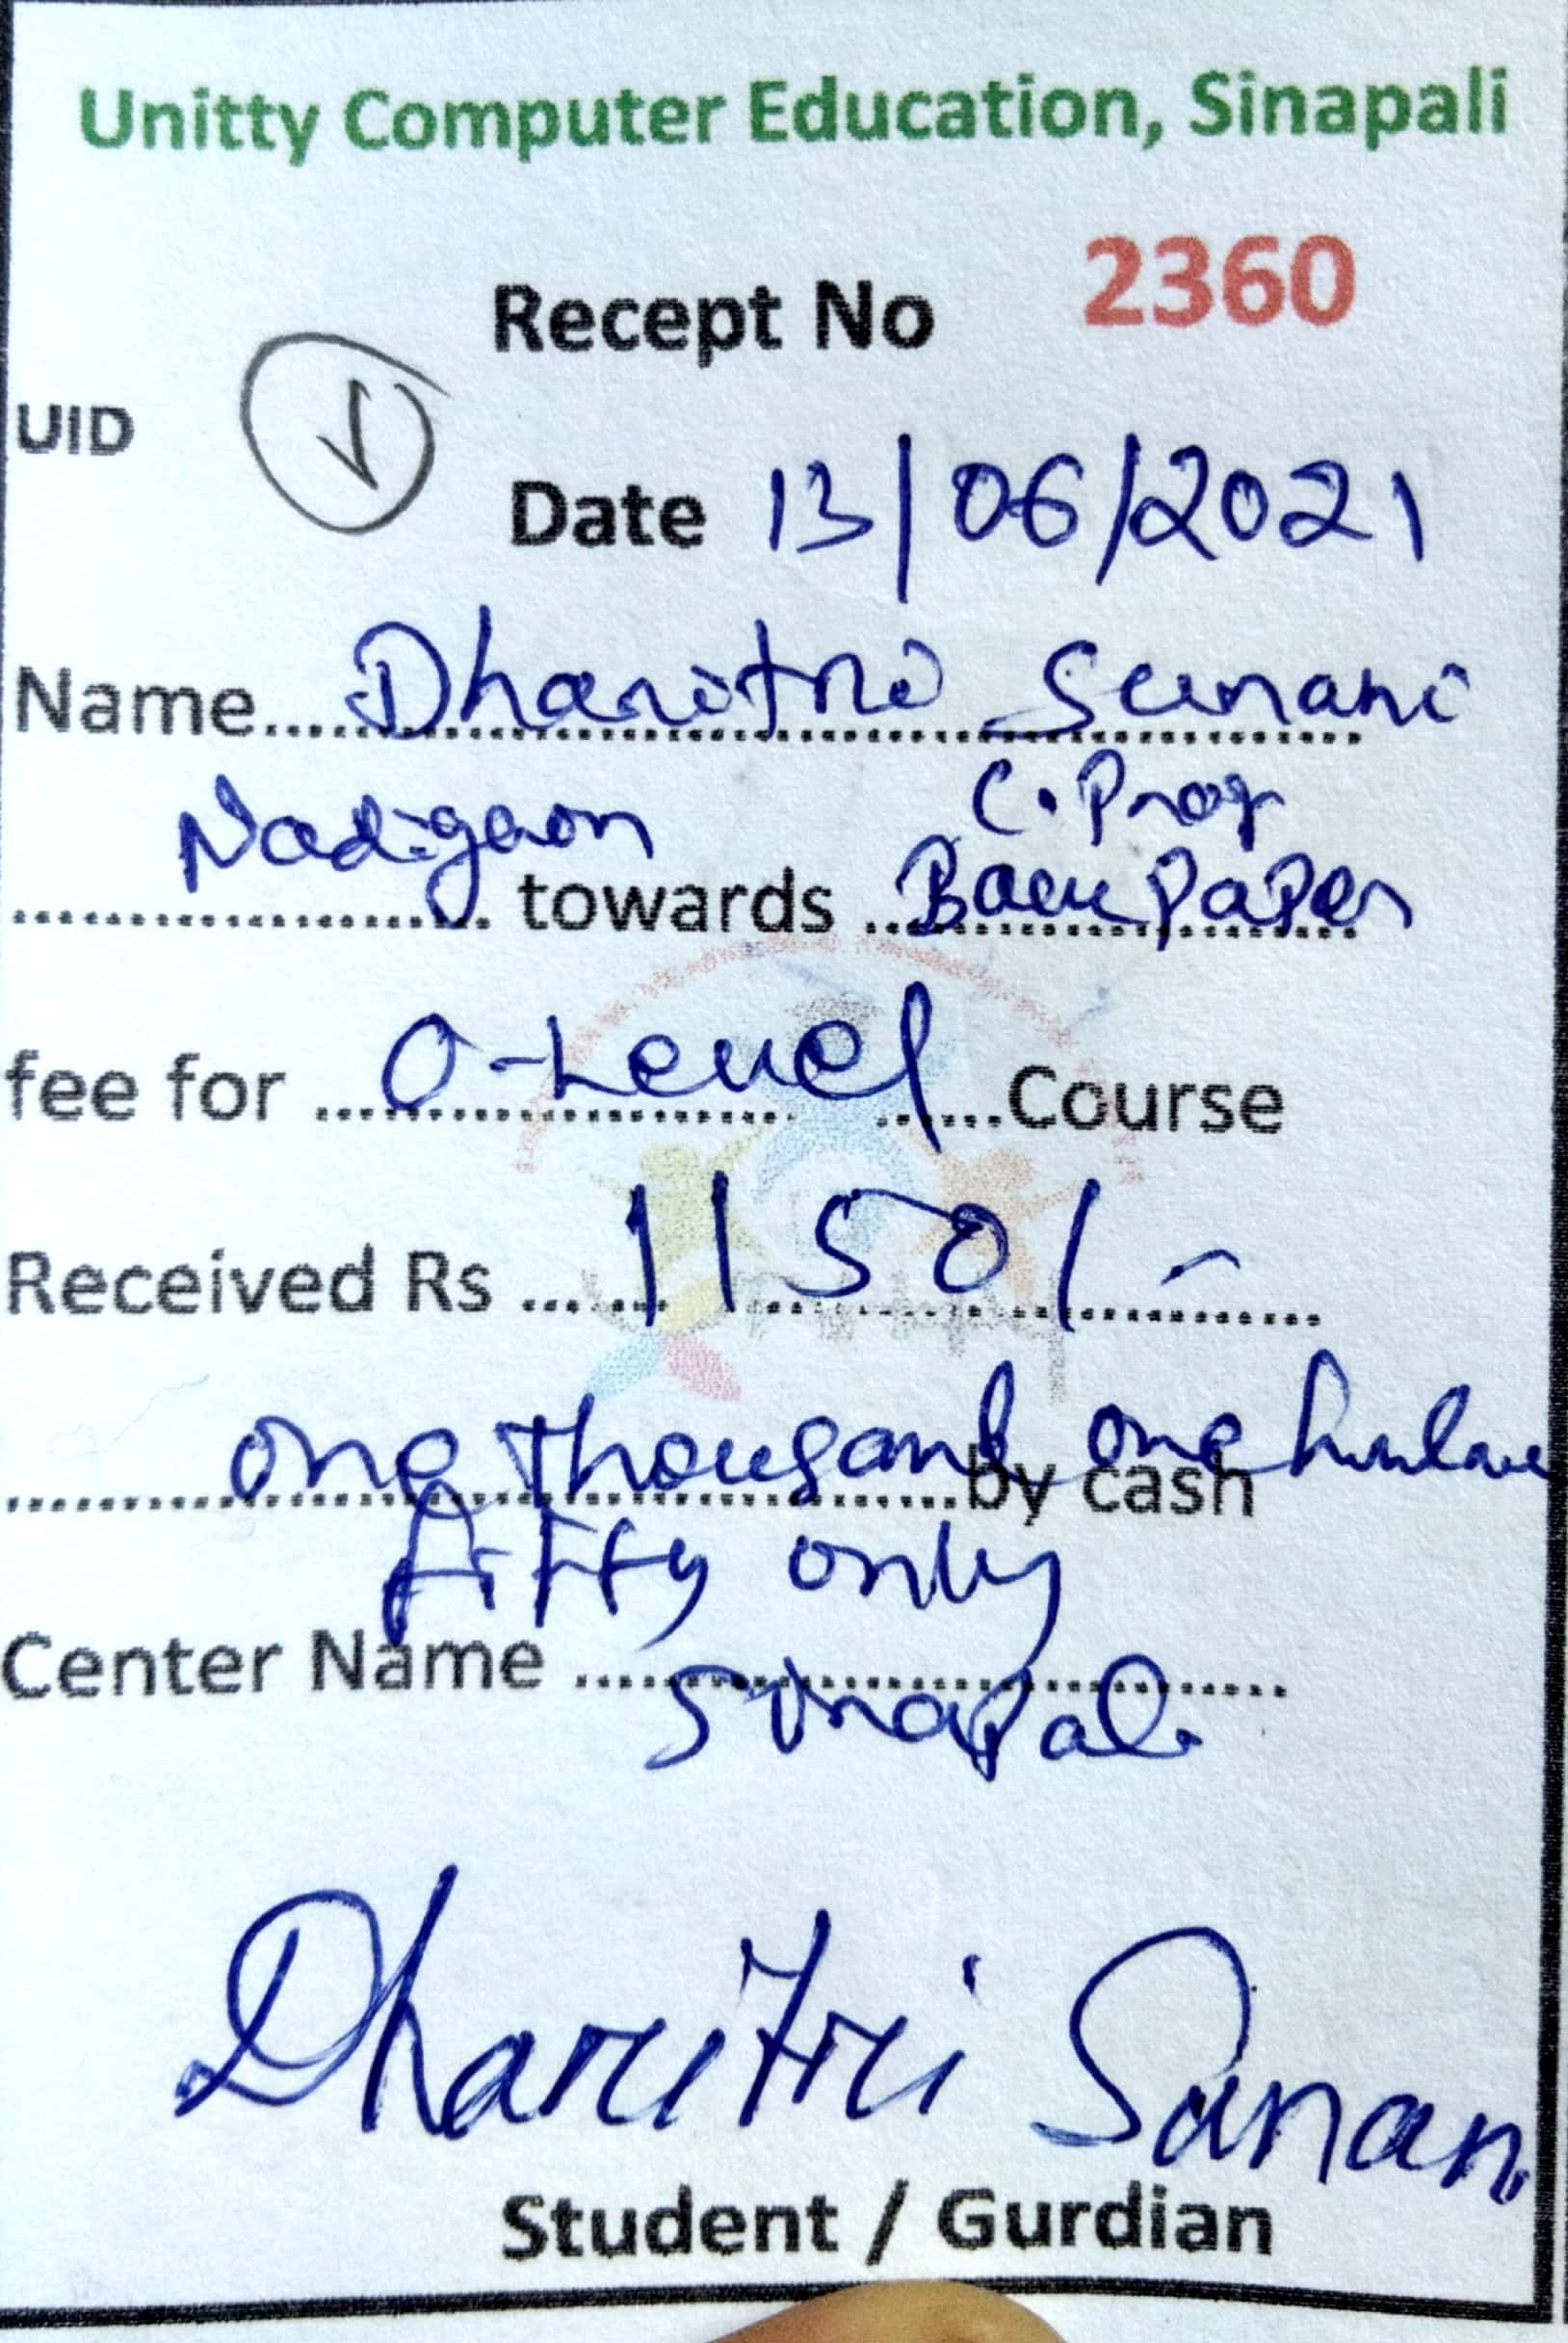 Unitty Computer Education, Sinapali
Recept No 2360
UID
Date 13/06/2021
Name.....Dharitri Sunani
Nadigaon C. Prog
......towards ..Back Paper
fee for ....O-Level.....Course
Received Rs ......1150/-
one thousand one hundred
......by cash
fifty only
Center Name ......
Sinapali
Dharitri Sunani
Student / Gurdian